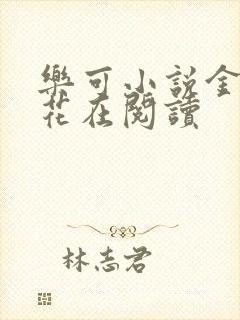 樂可小說金
花在閱讀
林志君